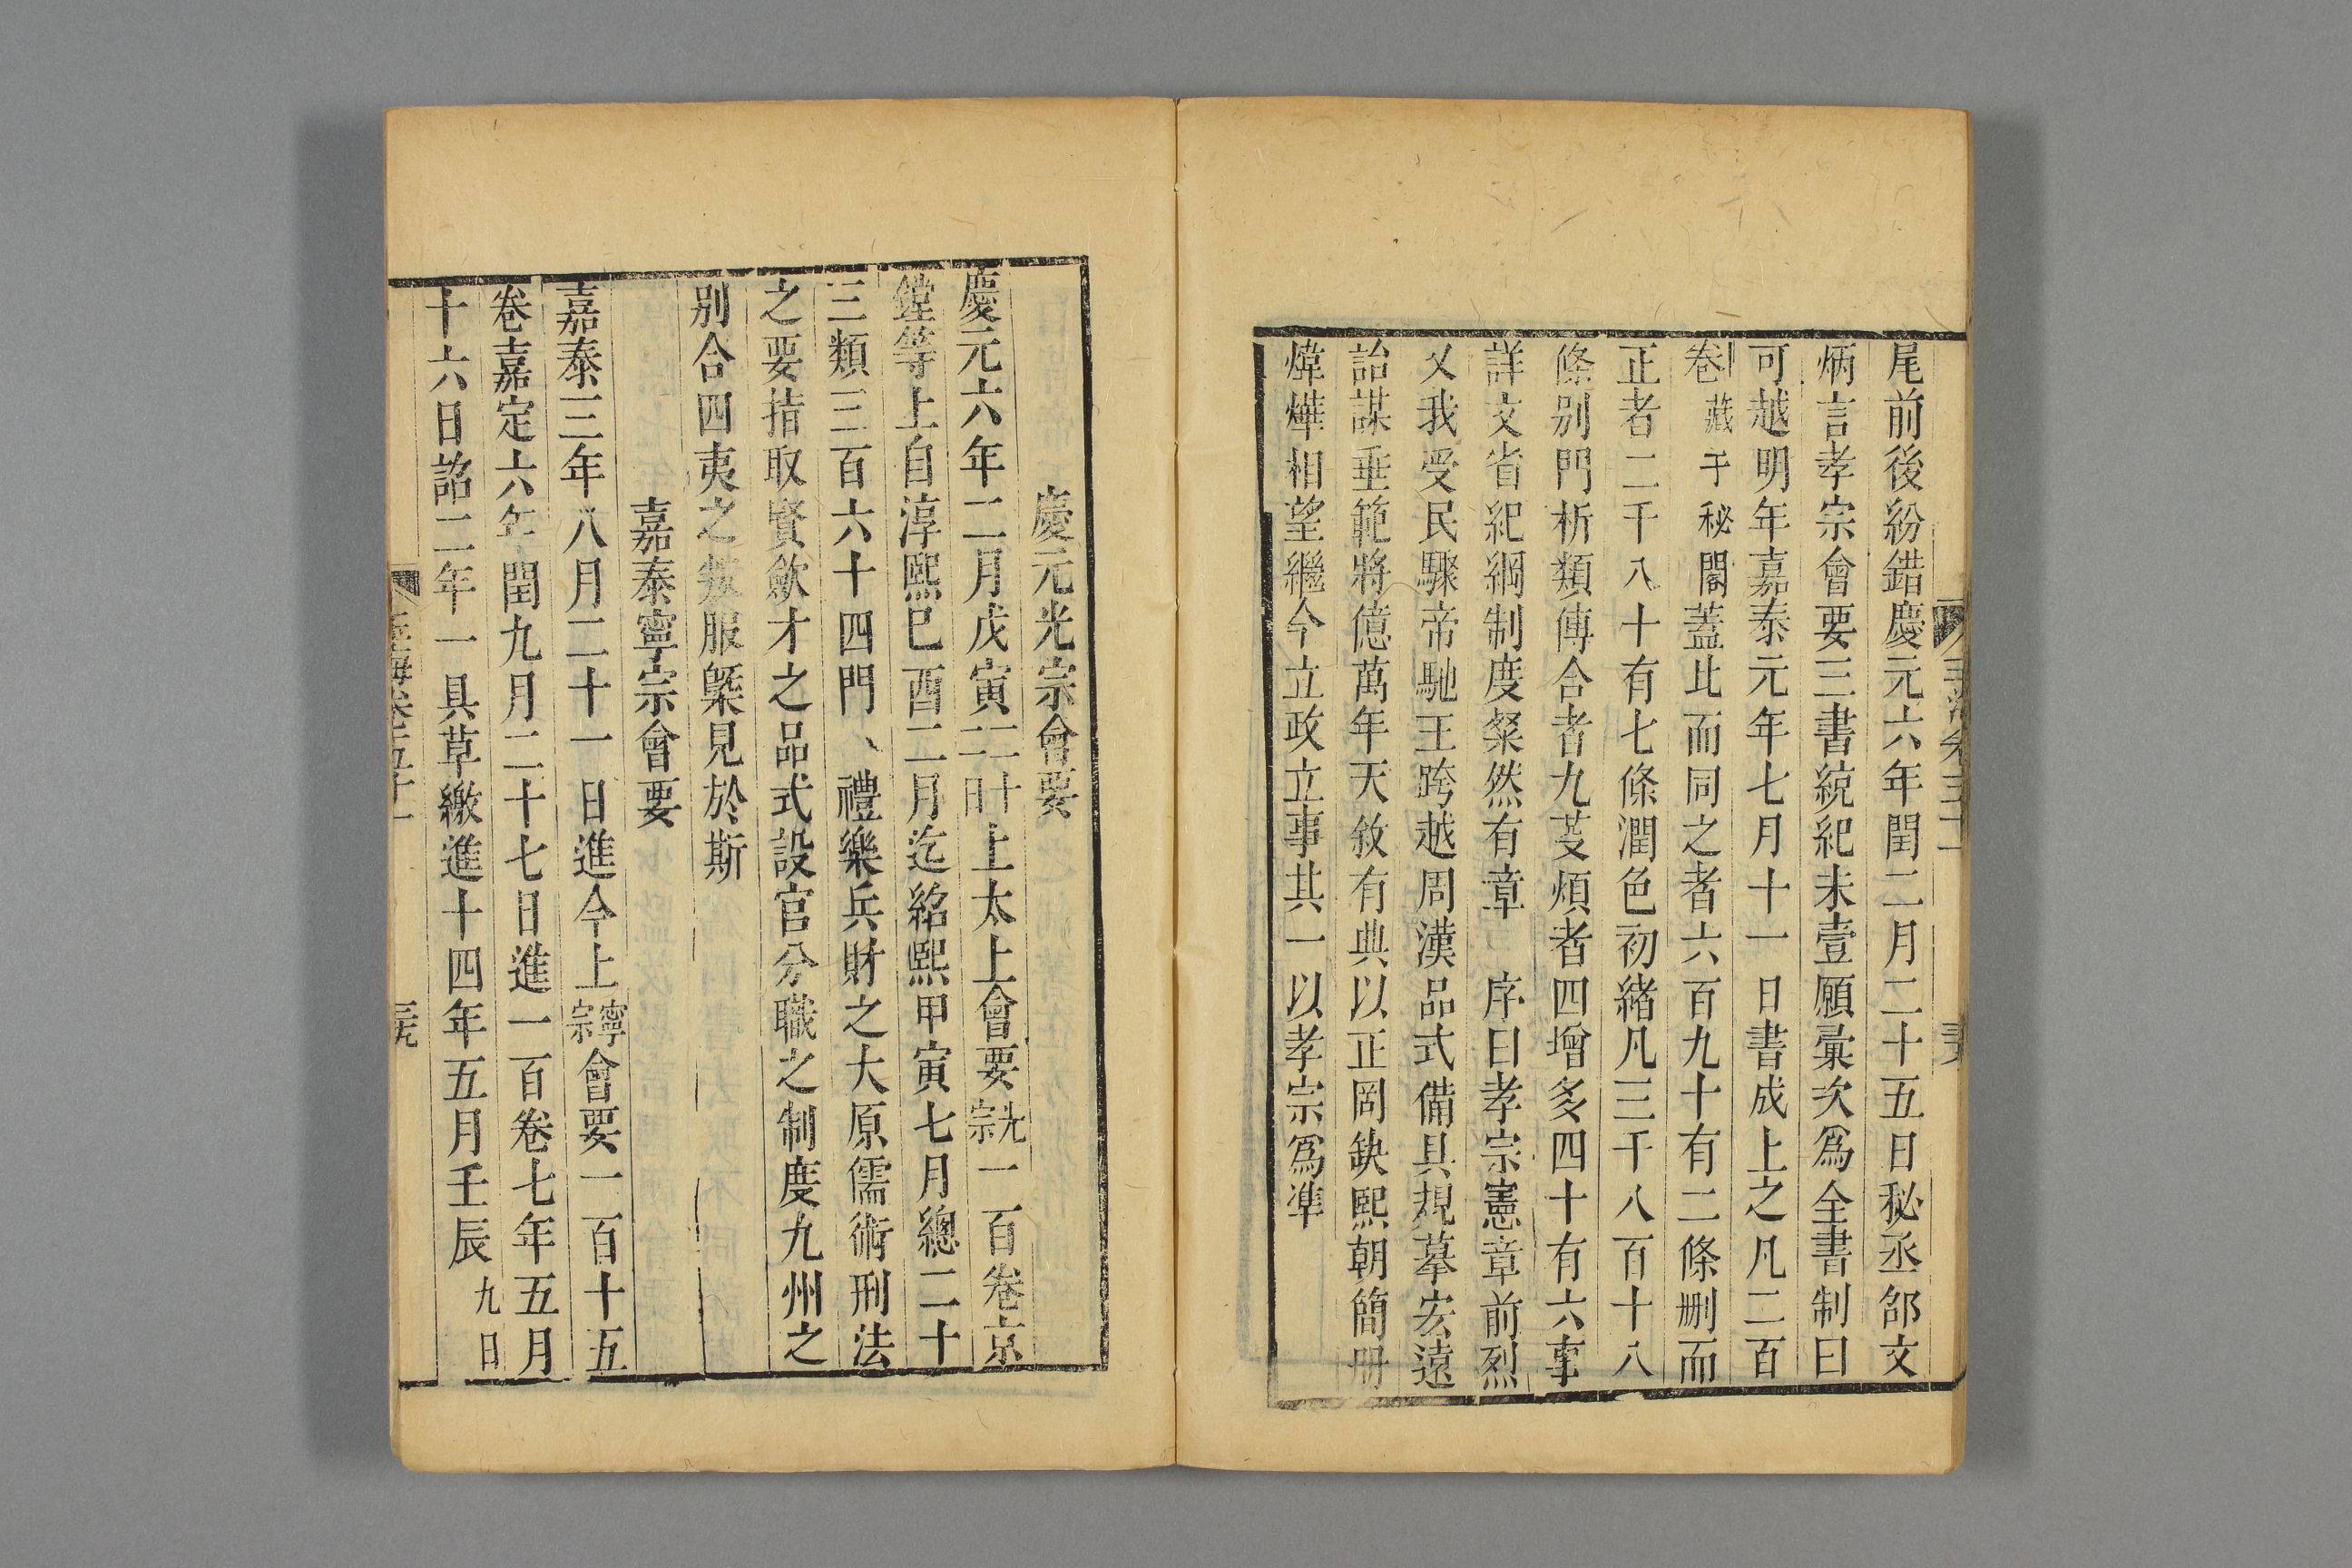 尾前後紛錯慶元六年閏二月二十五日秘丞邵文
炳言孝宗會要三書統紀未壹願彙次爲全書制曰
可越明年嘉泰元年七月十一日書成上之凡二百
卷藏于秘閣蓋此而同之者六百九十有二條刪而
正者二千八十有七條潤色初緒凡三千八百十八
條别門析類傅合者九芟煩者四增多四十有六事
詳文省紀綱制度粲然有章 序曰孝宗憲章前烈
乂我受民驟帝馳王跨越周漢品式備具規摹宏遠
詒謀垂範將億萬年天敘有典以正罔缺熙朝簡冊
煒燁相望繼今立政立事其一以孝宗爲準
慶元光宗會要
慶元六年二月戊寅二十二日上太上會要光宗一百卷京
鏜等上自淳熙巳酉二月迄紹熙甲寅七月總二十
三類三百六十四門、禮樂兵財之大原儒術刑法
之要揩取賢歛才之品式設官分職之制度九州之
别合四夷之叛服槩見於斯
嘉泰寧宗會要
嘉泰三年八月二十一日進今上寧宗會要一百十五
卷嘉定六年閏九月二十七日進一百卷七年五月
十六日詔二年一具草繳進十四年五月壬辰九日
玉海卷五十一
三九